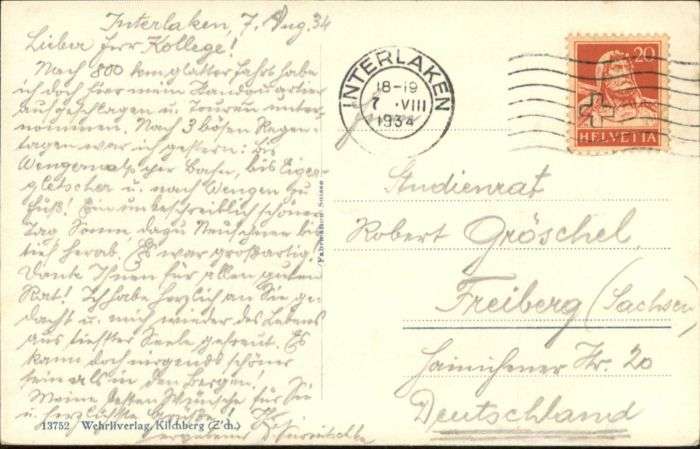 Interlaken, 7. Aug. 34
Lieber Herr Kollege!
Nach 800 km glatter Fahrt habe
ich doch hier mein Standquartier
aufgeschlagen u. Touren unter-
nommen. Nach 3 bösen Regen-
tagen war ich gestern: bis
Wengernalp per Bahn, bis Eiger-
gletscher u. nach Wengen zu
Fuß! Ein unbeschreiblich schöner
Tag Sonne dazu Neuschnee bis
tief herab. Es war großartig.
Danke Ihnen für allen guten
Rat! Ich habe herzlich an Sie ge-
dacht u. mich wieder des Lebens
aus tiefster Seele gefreut. Es
kann doch nirgends schöner
sein als in den Bergen!
Meine besten Wünsche für Sie
u. herzlichste Grüße! Ihr
ergebener
13752 Wehrliverlag, Kilchberg (Z'ch.)
Fabrication Suisse
INTERLAKEN
18-19
7. VIII
1934
20
HELVETIA
Studienrat
Robert Gröschel,
Freiberg (Sachsen)
Hainichener Str. 20
Deutschland